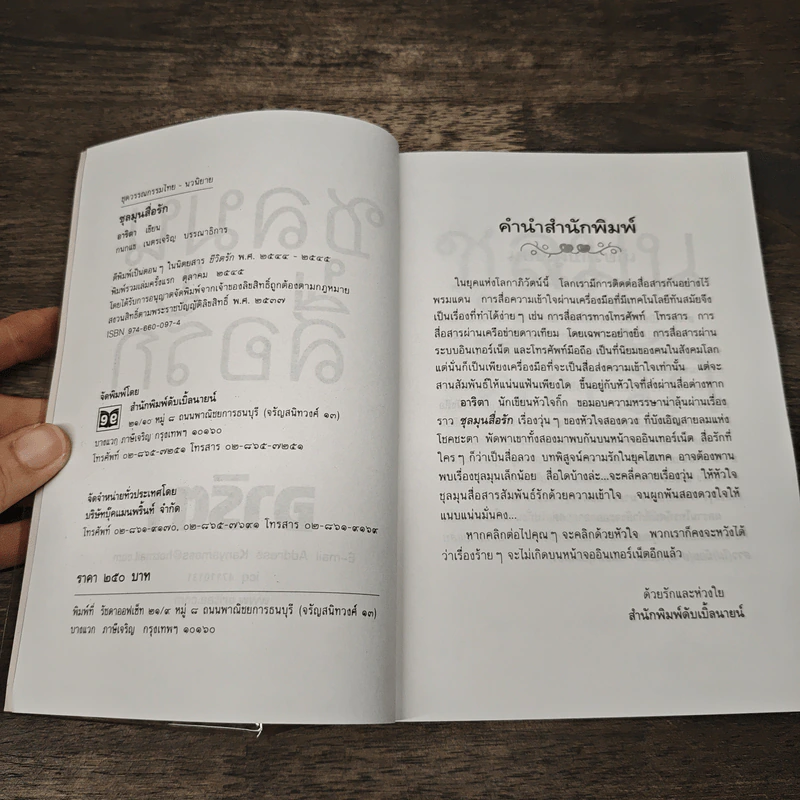 ชุดวรรณกรรมไทย - นวนิยาย
ชุลมุนสื่อรัก
อาริตา เขียน
กนกแข เนตรเจริญ บรรณาธิการ
ตีพิมพ์เป็นตอนๆ ในนิตยสาร ชีวิตรัก พ.ศ. ๒๕๔๔ - ๒๕๔๕
พิมพ์รวมเล่มครั้งแรก ตุลาคม ๒๕๔๕
โดยได้รับการอนุญาตจัดพิมพ์จากเจ้าของลิขสิทธิ์ถูกต้องตามกฎหมาย
สงวนสิทธิ์ตามพระราชบัญญัติลิขสิทธิ์ พ.ศ. ๒๕๓๗
ISBN 974-660-097-4
จัดพิมพ์โดย
สำนักพิมพ์ดับเบิ้ลนายน์
๒๑/๑๐ หมู่ ๘ ถนนพาณิชยการธนบุรี (จรัญสนิทวงศ์ ๑๓)
บางแวก ภาษีเจริญ กรุงเทพฯ ๑๐๑๖๐
โทรศัพท์ ๐๒-๘๖๕-๗๒๕๑ โทรสาร ๐๒-๘๖๕-๗๒๕๑
จัดจำหน่ายทั่วประเทศโดย
บริษัทบุ๊คแมนพริ้นท์ จำกัด
โทรศัพท์ ๐๒-๘๖๑-๙๑๗๐, ๐๒-๘๖๕-๗๖๙๑ โทรสาร ๐๒-๘๖๑-๙๑๖๙
ราคา ๒๕๐ บาท
พิมพ์ที่ รัชดาออฟเซ็ท ๒๑/๙ หมู่ ๘ ถนนพาณิชยการธนบุรี (จรัญสนิทวงศ์ ๑๓)
บางแวก ภาษีเจริญ กรุงเทพฯ ๑๐๑๖๐
คำนำสำนักพิมพ์
ในยุคแห่งโลกาภิวัตน์นี้ โลกเรามีการติดต่อสื่อสารกันอย่างไร้
พรมแดน การสื่อความเข้าใจผ่านเครื่องมือที่มีเทคโนโลยีทันสมัยจึง
เป็นเรื่องที่ทำได้ง่ายๆ เช่น การสื่อสารทางโทรศัพท์ โทรสาร การ
สื่อสารผ่านเครือข่ายดาวเทียม โดยเฉพาะอย่างยิ่ง การสื่อสารผ่าน
ระบบอินเทอร์เน็ต และโทรศัพท์มือถือ เป็นที่นิยมของคนในสังคมโลก
แต่นั่นก็เป็นเพียงเครื่องมือที่จะเป็นสื่อส่งความเข้าใจเท่านั้น แต่จะ
สานสัมพันธ์ให้แน่นแฟ้นเพียงใด ขึ้นอยู่กับหัวใจที่ส่งผ่านสื่อต่างหาก
อาริตา นักเขียนหัวใจกิ๊ก ขอมอบความหรรษาน่าลุ้นผ่านเรื่อง
ราว ชุลมุนสื่อรัก เรื่องวุ่นๆ ของหัวใจสองดวง ที่บังเอิญสายลมแห่ง
โชคชะตา พัดพาเขาทั้งสองมาพบกันบนหน้าจออินเทอร์เน็ต สื่อรักที่
ใครๆ ก็ว่าเป็นสื่อลวง บทพิสูจน์ความรักในยุคไฮเทค อาจต้องพาน
พบเรื่องชุลมุนเล็กน้อย สื่อใดบ้างล่ะ...จะคลี่คลายเรื่องวุ่น ให้หัวใจ
ชุลมุนสื่อสารสัมพันธ์รักด้วยความเข้าใจ จนผูกพันสองดวงใจให้
แนบแน่นมั่นคง...
หากคลิกต่อไปคุณๆ จะคลิกด้วยหัวใจ พวกเราก็คงจะหวังได้
ว่าเรื่องร้ายๆ จะไม่เกิดบนหน้าจออินเทอร์เน็ตอีกแล้ว
ด้วยรักและห่วงใย
สำนักพิมพ์ดับเบิ้ลนายน์